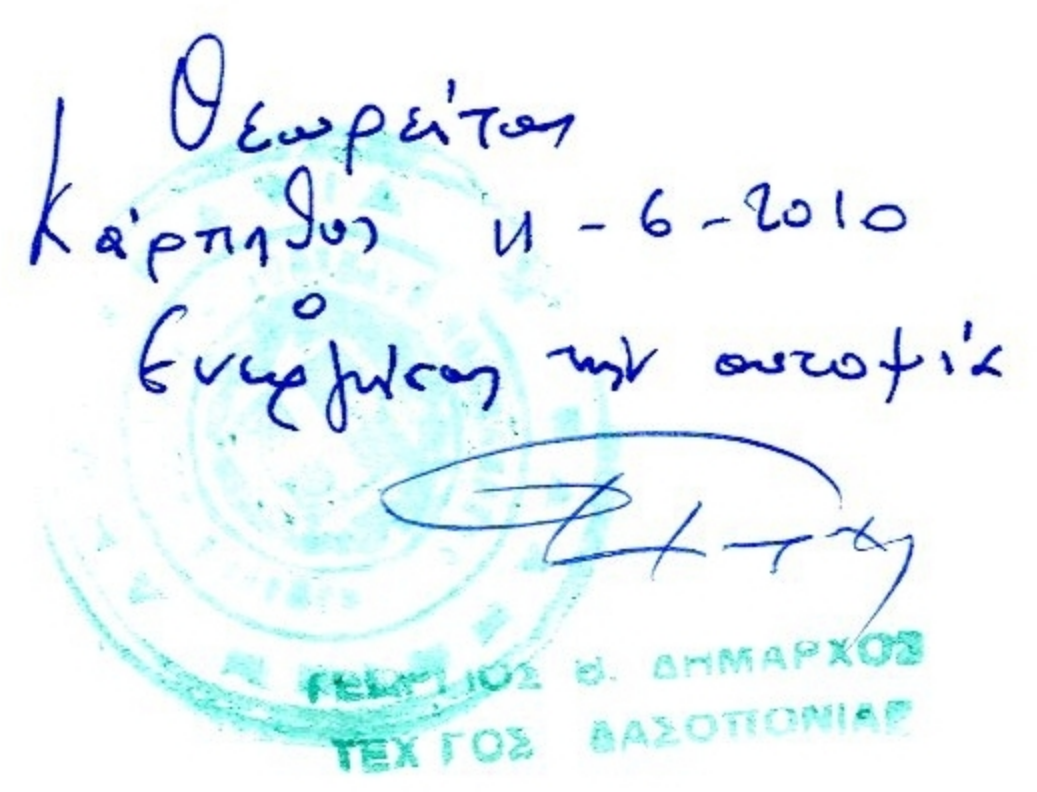 Θεωρείται
Κάρπαθος 11-6-2010
Ο
Ενεργήσας την αυτοψία
ΓΕΩΡΓΙΟΣ Β. ΔΗΜΑΡΧΟΣ
ΤΕΧΓΟΣ ΔΑΣΟΠΟΝΙΑΣ